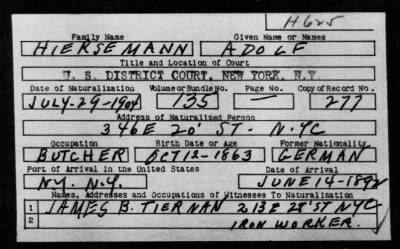 H625
Family Name Given Name or Names
HIERSEMANN ADOLF
Title and Location of Court
U. S. DISTRICT COURT, NEW YORK, N.Y.
Date of Naturalization Volume or Bundle No. Page No. Copy of Record No.
JULY-29-1904 135 — 277
Address of Naturalized Person
346 E 20' ST. N.YC
Occupation Birth Date or Age Former Nationality
BUTCHER OCT 12-1863 GERMAN
Port of Arrival in the United States Date of Arrival
N.Y. N.Y. JUNE 14-1892
Names, Addresses and Occupations of Witnesses To Naturalization
1 JAMES B. TIERNAN 213 E 28' ST N.Y.C
2 IRON WORKER.